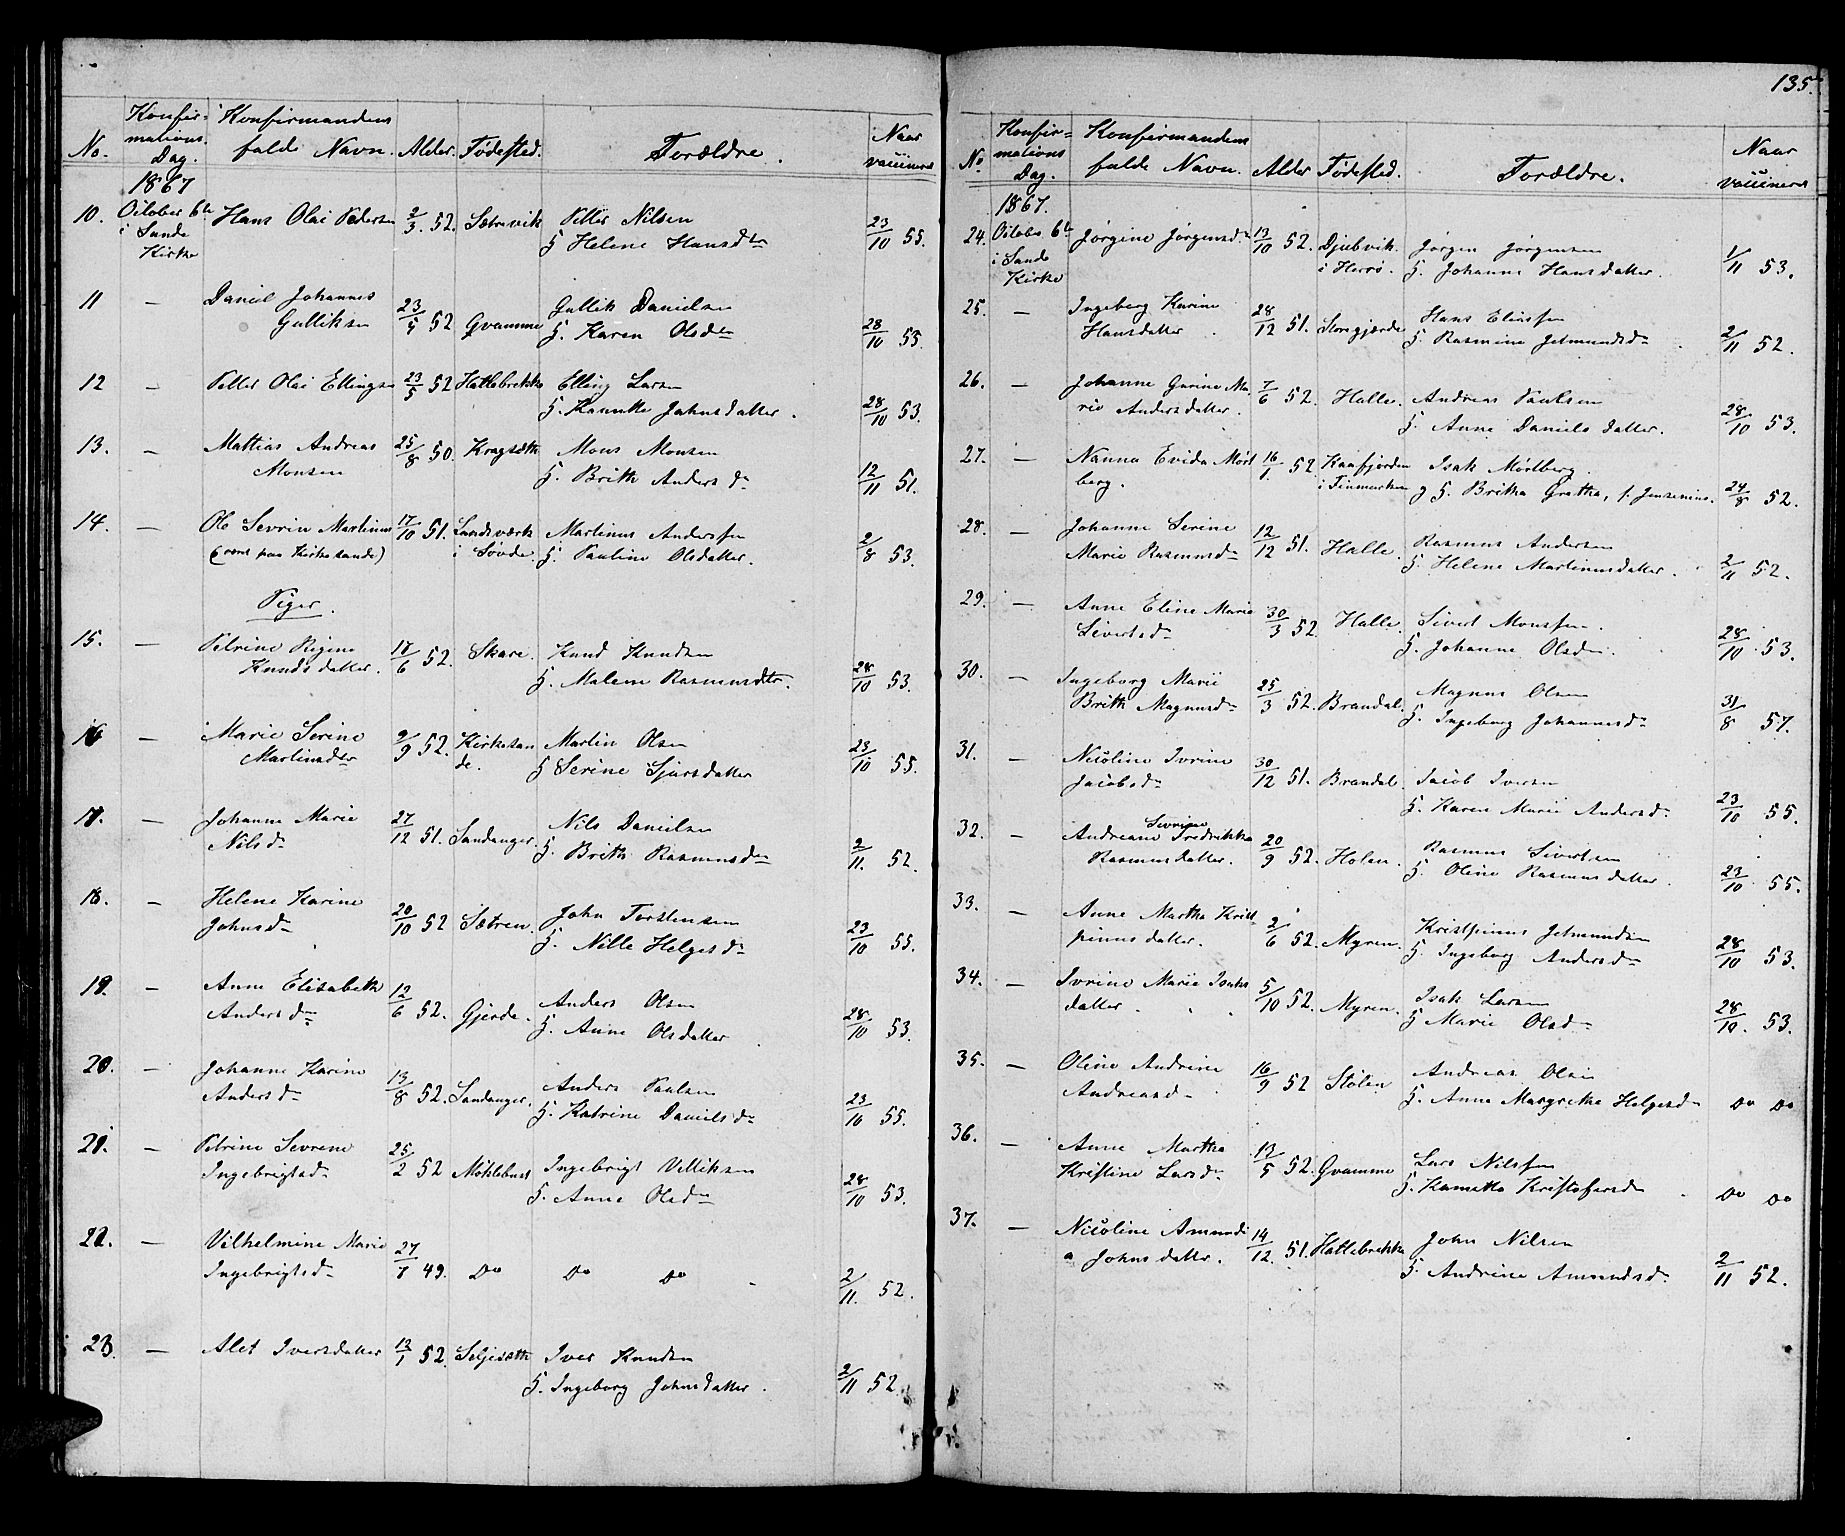 135.
No. Konfirmations Dag. Konfirmandens fulde Navn. Alder. Fødested. Forældre. Naar vaccineret
1867
10. October 6te i Sande Kirke Hans Olai Pedersen 2/3 52. Sætrevik Petter Nilsen 23/10 55.
H. Helene Hansdtr
11 — Daniel Johannes Gulliksen 23/5 52 Gvamme Gullik Danielsen
H. Karen Olsdr 28/10 55.
12 — Petter Olai Ellingsen 23/5 52 Hatlebrekke Elling Larsen
H. Kanutte Johnsdatter. 28/10 53.
13. — Mattias Andreas Monsen 25/8 50. Kragsæth Mons Monsen
H. Brith Andersdr 12/11 51.
14. — Ole Sevrin Martinus 17/10 51. Landsværk i Søvde. Martinus Anderssen
(rømt paa Kirkesande) H. Pauline Olsdatter. 2/8 53.
Piger.
15. — Petrine Regine Knudsdatter. 18/6 52. Skare. Knud Knudsen
H. Malene Rasmusdtr. 28/10 53.
16 — Marie Serine Martinsdtr 9/9 52. Kirkesande. Martin Olsen
H Serine Sjursdatter 23/10 55.
17. — Johanne Marie Nilsdr 27/12 51. Sandanger. Nils Danielsen
H. Brith Rasmusdr 2/11. 52.
18. — Helene Karine Johnsdr 20/10 52 Sætren. John Torstensen
H. Nille Helgesdr 23/10 55.
19. — Anne Elisabeth Andersdr 12/6 52. Gjerde. Anders Olsen
H. Anne Olsdatter 28/10 53.
20. — Johanne Karine Andersdr 13/8 52. Sandanger. Anders Paulsen
H. Katrine Danielsdr 23/10 55.
21. — Petrine Sevrene Ingebrigtsdr 25/2 52 Møklebust Ingebrigt Velliksen
H. Anne Olsdr 28/10 53.
22. — Vilhelmine Marie Ingebrigtsdr 27/7 49. Do Do Do 2/11. 52.
23. — Alet Iversdatter 13/1 52. Seljesæth Iver Knudsen
H. Ingeborg Johnsdatter. 2/11 52.
No Konfirmations Dag. Konfirmandens fulde Navn. Alder Fødested. Forældre. Naar vaccineret
1867.
24. Octobr 6te i Sande Kirke Jørgine Jørgensdr 13/10 52. Djubvik i Herrø. Jørgen Jørgensen
H. Johanne Hansdatter. 1/11 53.
25. — Ingeborg Karine Hansdatter 28/12 51. Storegjærde Hans Eliassen
H. Rasmine Jetmundsdr 2/11 52.
26. — Johanne Gurine Marie Andersdatter. 7/6 52. Halle. Andreas Paulsen
H. Anne Danielsdatter. 28/10 53.
27. — Nanna Evida Mørtberg. 16/1. 52 Kaafjorden i Finmarken Isak Mørtberg.
og H. Britha Gretha, f. Jensenius. 24/8 52.
28. — Johanne Serine Marie Rasmusdr 12/12 51. Halle. Rasmus Andersen
H. Helene Martinusdatter. 2/11 52.
29. — Anne Eline Marie Sivertsdr 30/3 52. Halle. Sivert Monssen.
H. Johanne Olsdr. 28/10 53.
30. — Ingeborg Marie Brith Magnusdr 25/3 52. Brandal. Magnus Olsen
H. Ingeborg Johannesdr 31/8 57.
31. — Nicoline Ivrine Jacobsdr 30/12 51. Brandal. Jacob Iversen
H. Karen Marie Andersdr 23/10 55.
32. — Andreane Sevrine Fredrikke Rasmusdatter. 20/9 52. Holen. Rasmus Sivertsen
H. Oline Rasmusdatter. 23/10 55.
33. — Anne Martha Kristpinusdatter. 2/6 52. Myren. Kristpinus Jetmundsen
H. Ingeborg Andersdr 28/10 53.
34. — Ivrine Marie Isaksdatter. 5/10 52. Myren. Isak Larsen
H Marie Olsdr 28/10. 53.
35. — Oline Andrine Andreasdr 16/9 52 Stølen Andreas Olsen
H. Anne Margrethe Helgesdr Do Do
36. — Anne Martha Kristine Larsdr 12/5 52. Gvamme Lars Nilssen
H. Kanutte Kristofersdr Do Do
37. — Nicoline Amundia Johnsdatter. 14/12. 51. Hatlebrekke John Nilsen
H. Andrine Amundsdr 2/11 52.